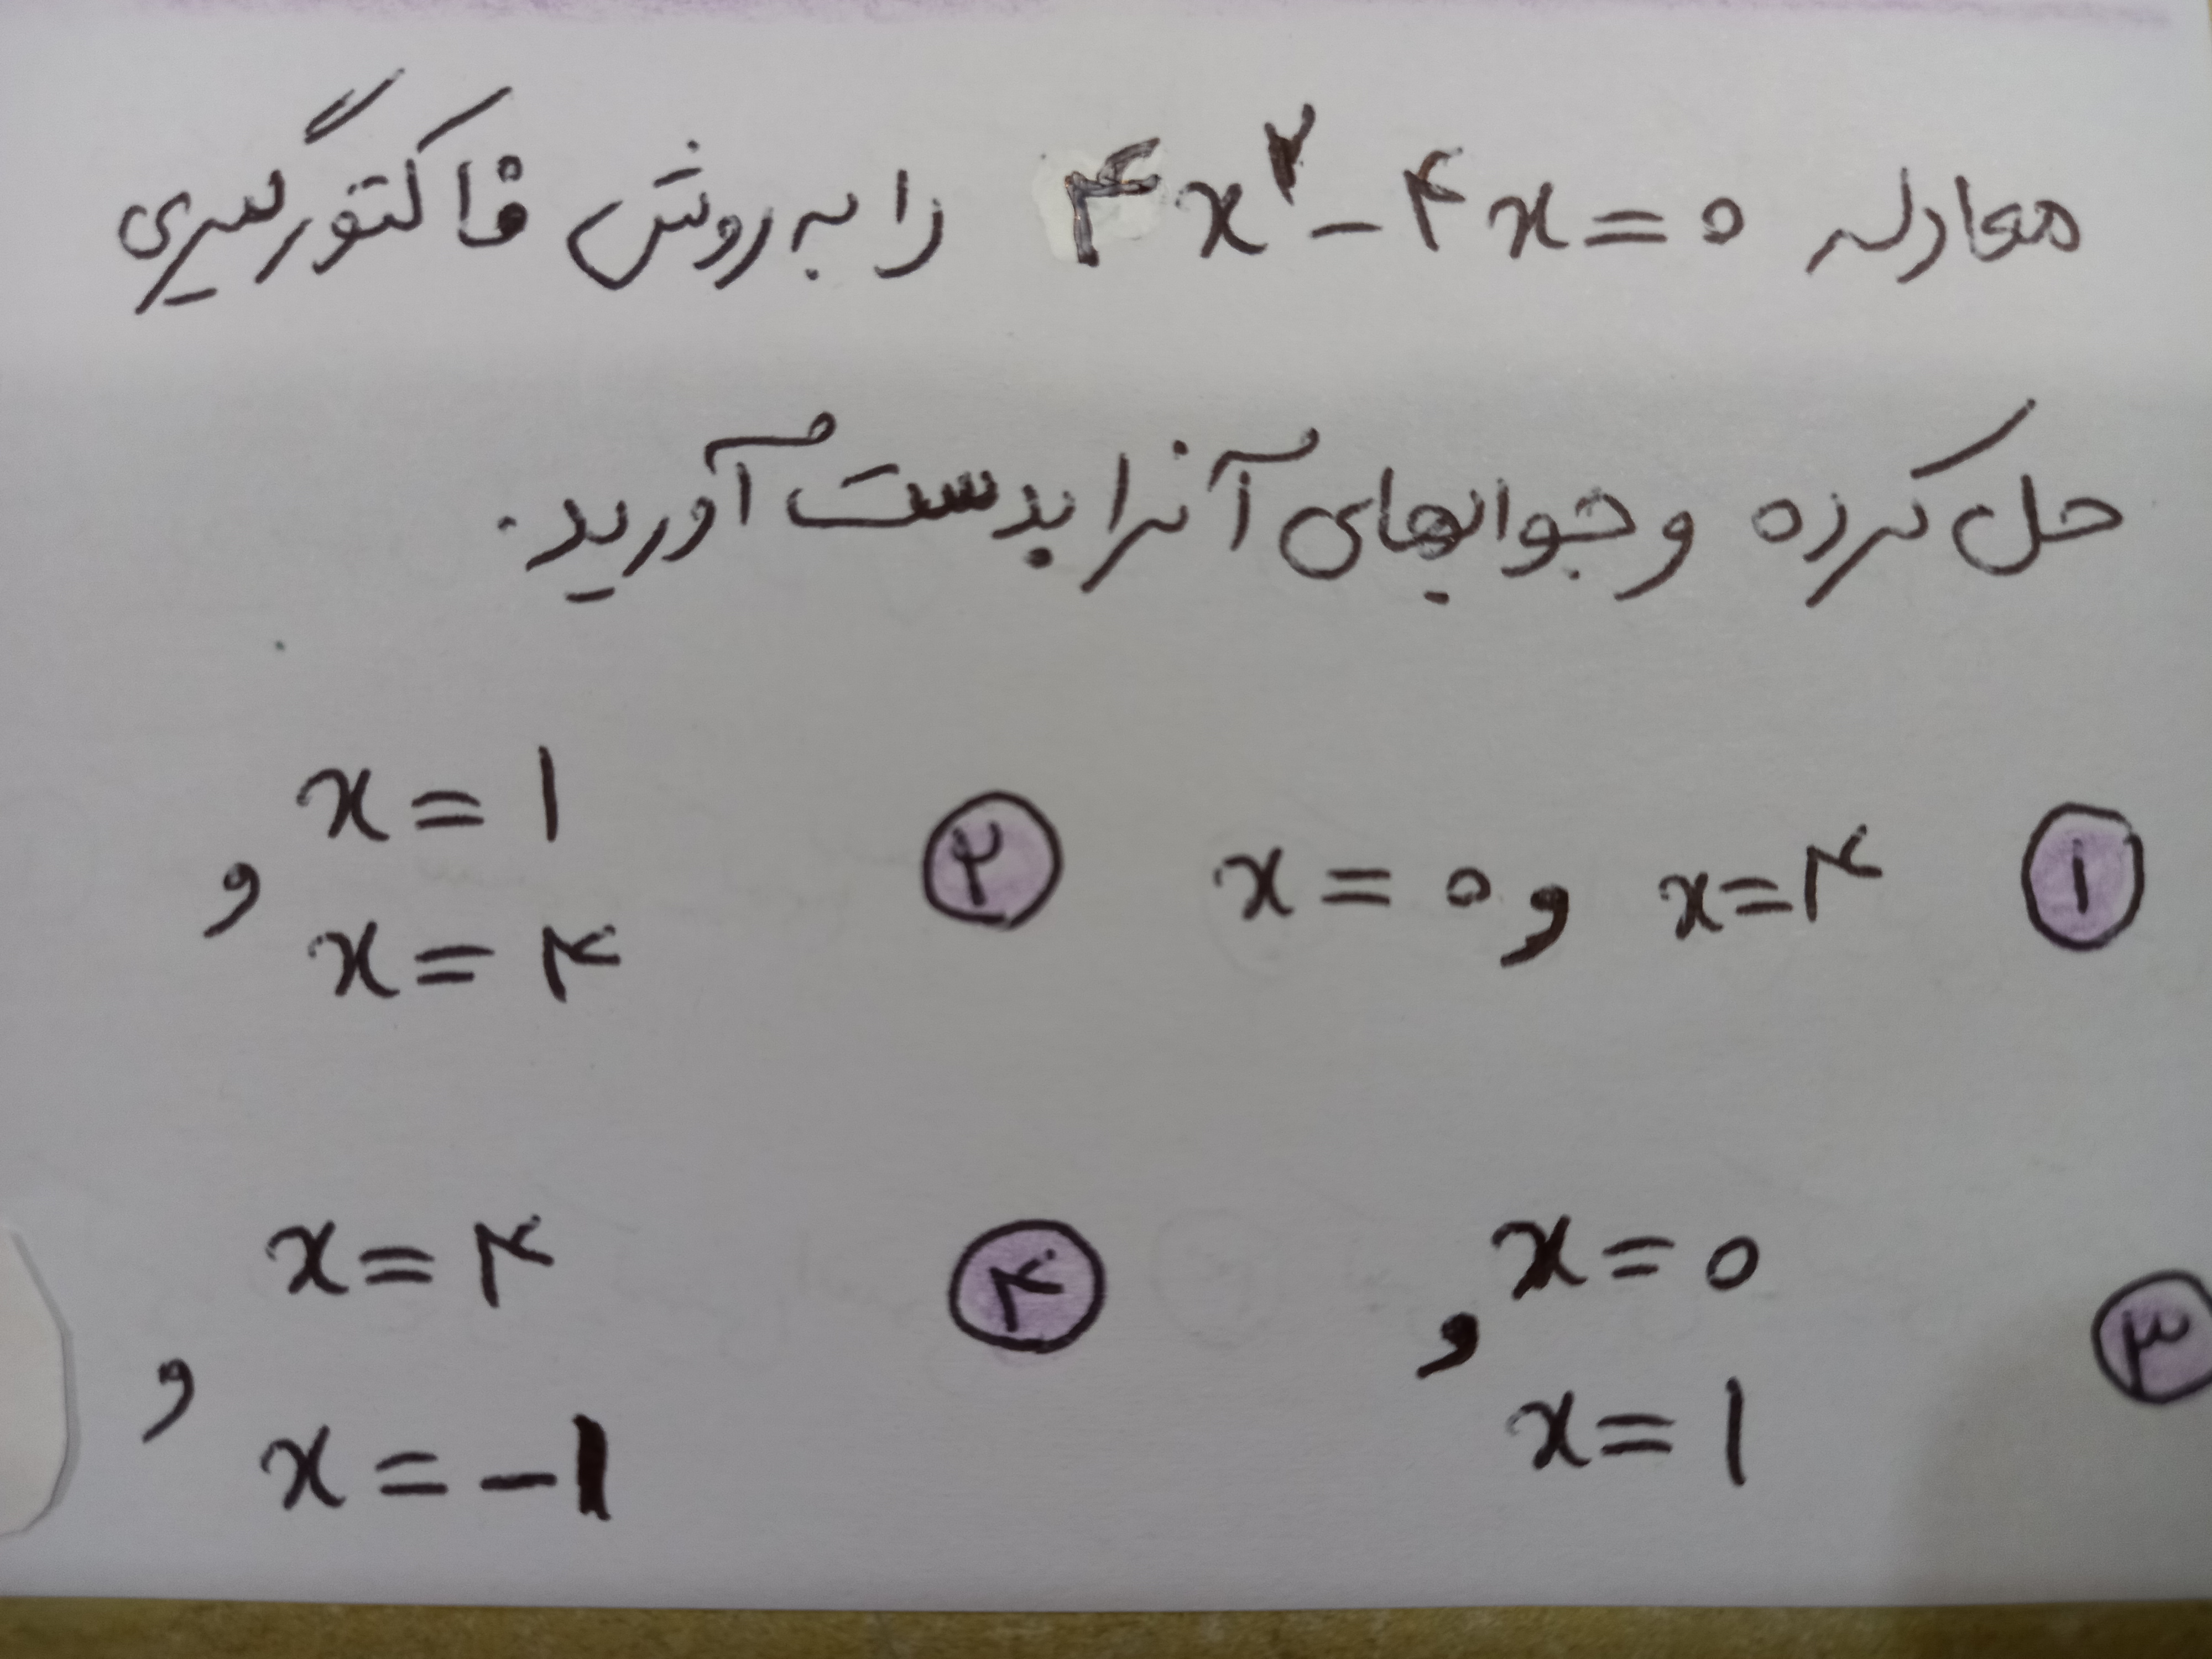 معادله ۴x²-۴x=۰ را به روش فاکتورگیری
حل کرده و جوابهای آنرا بدست آورید.
۱ x=۰ و x=۴ ۲ x=۱ و x=۴
۳ x=۰ و x=۱ ۴ x=۴ و x=-۱